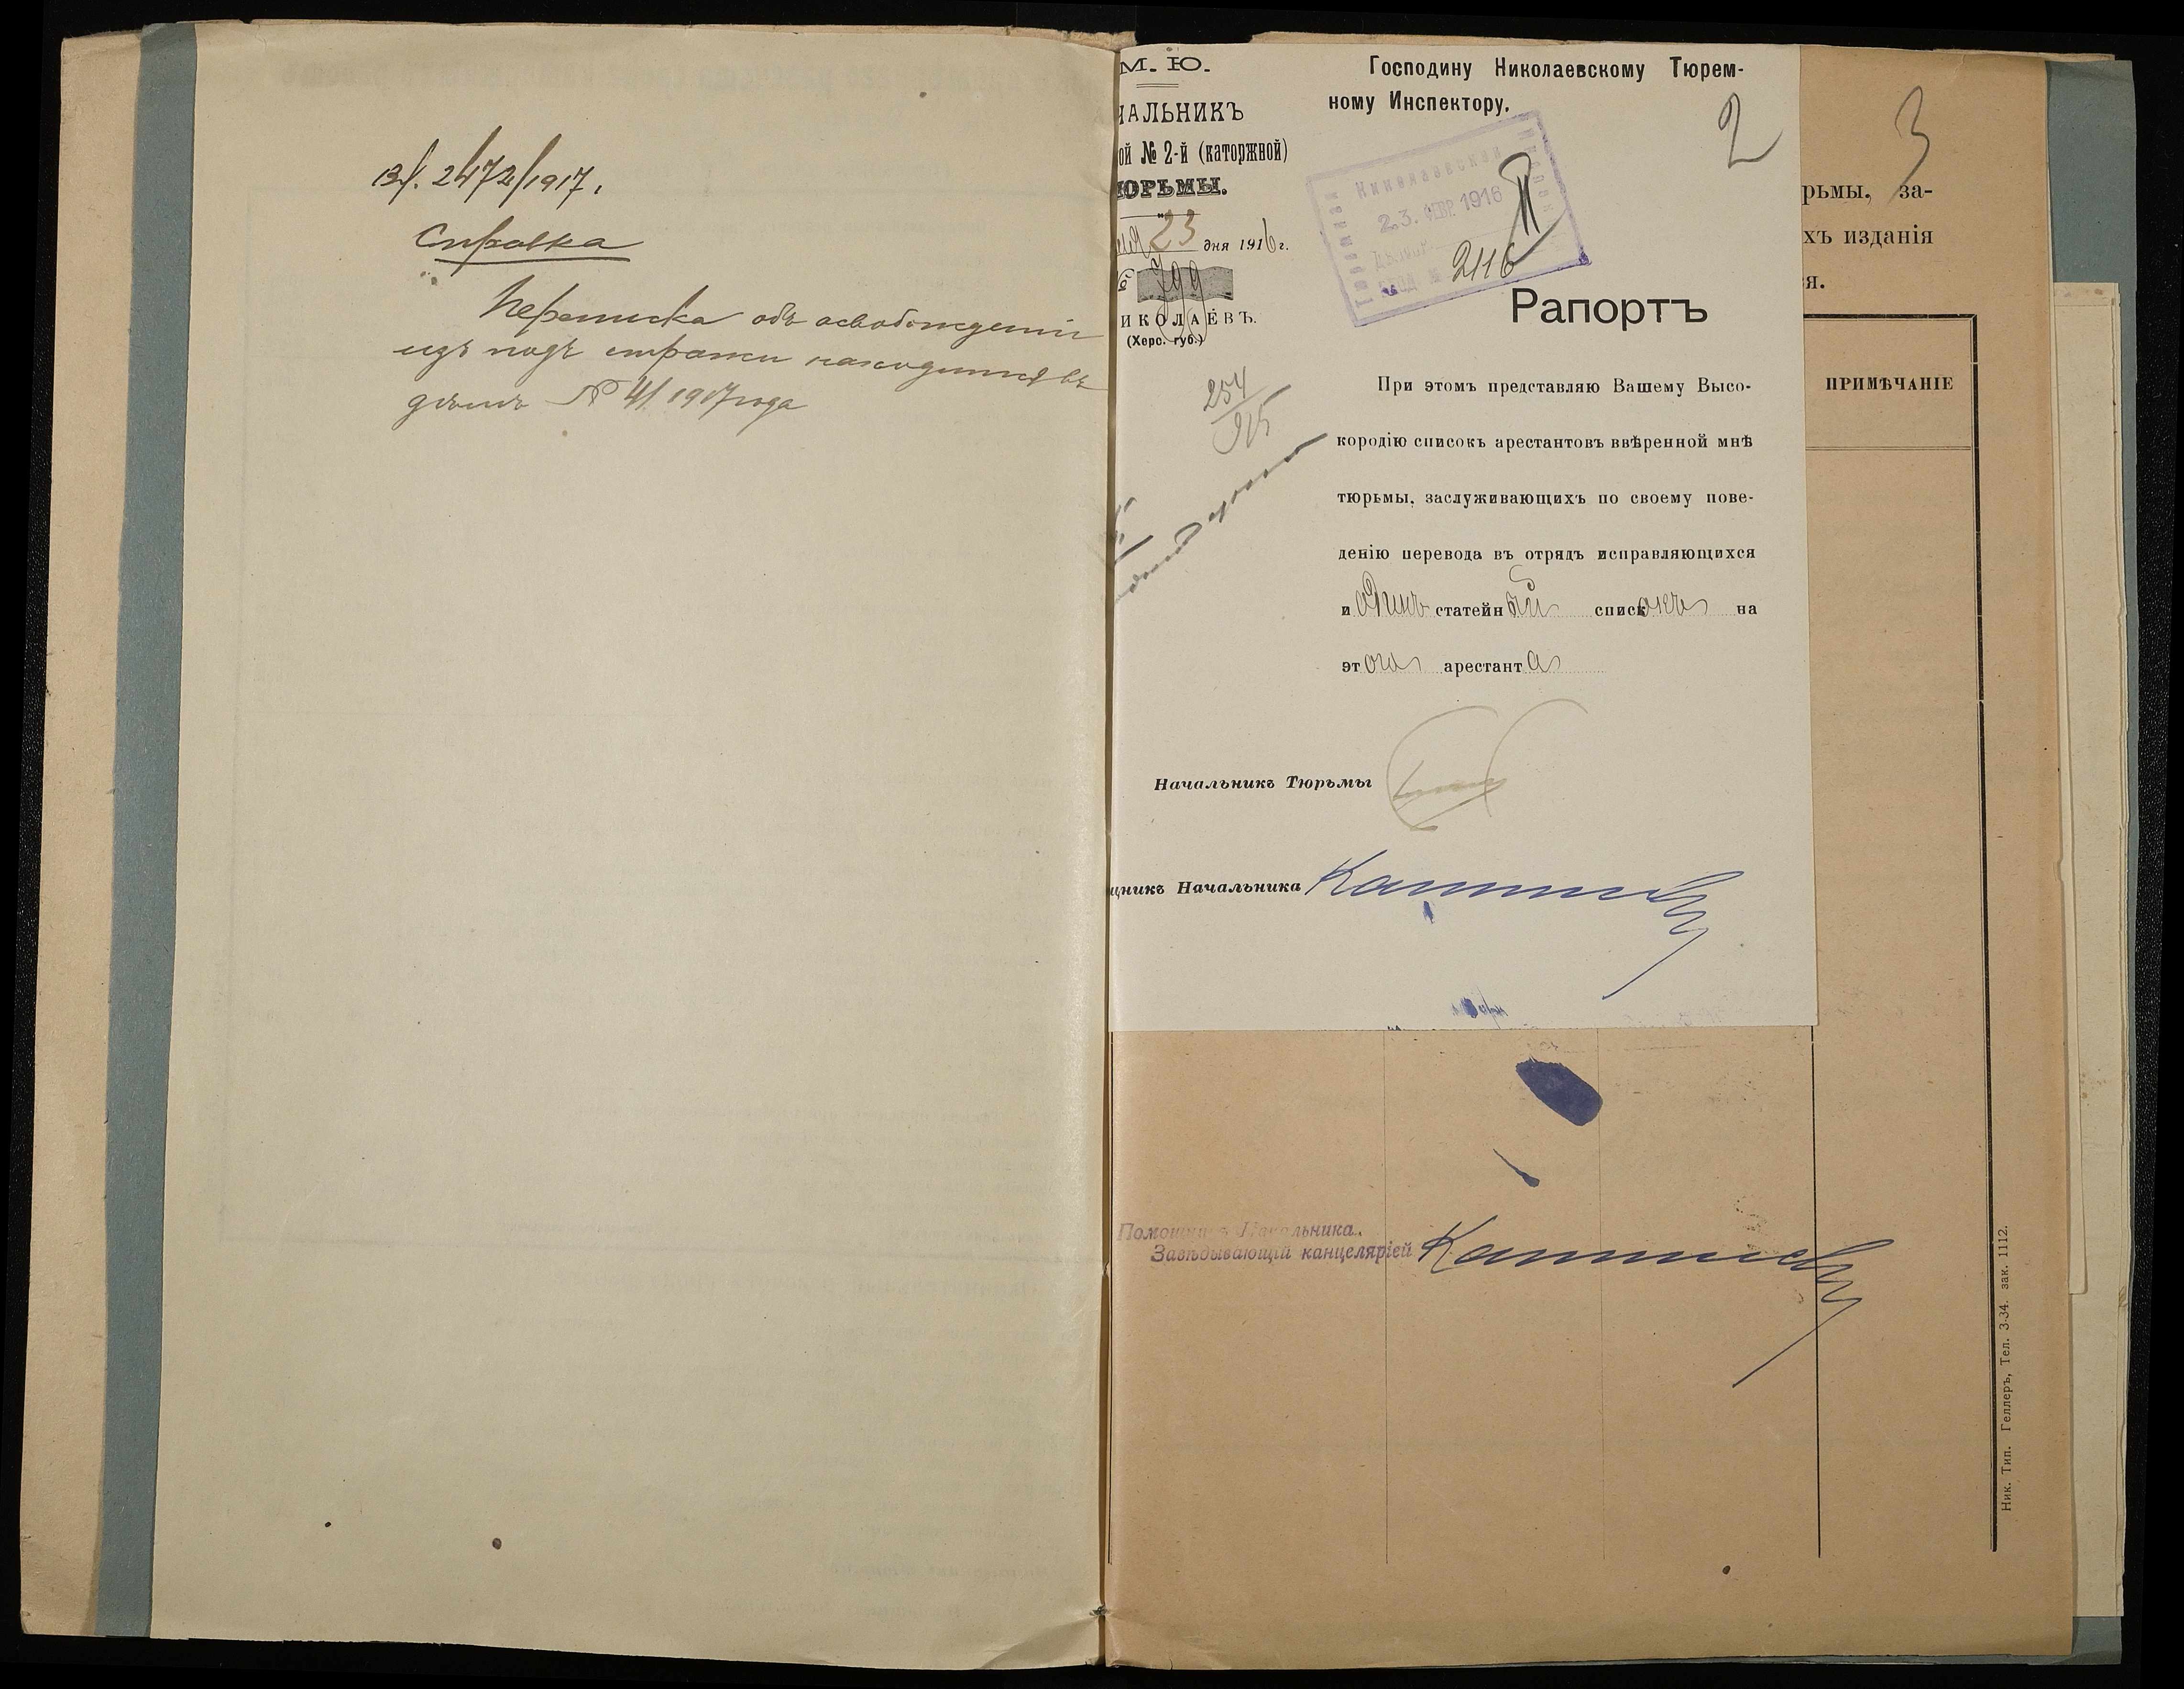 Вх. 2472/1917.
Справка
Переписка объ освобожденіи
изъ подъ стражи находится въ
дѣлѣ № 41 1917 года
М. Ю.
ЧАЛЬНИКЪ
ой № 2-й (каторжной)
ЮРЬМЫ.
23 дня 1916 г.
799
ИКОЛАЕВЪ.
(Херс. губ.)
254
915
Господину Николаевскому Тюрем-
ному Инспектору.
2
Николаевская
23. ФЕВР 1916
2116
Рапортъ
При этомъ представляю Вашему Высо-
кородію списокъ арестантовъ ввѣренной мнѣ
тюрьмы, заслуживающихъ по своему пове-
денію перевода въ отрядъ исправляющихся
и одинъ статейный списокъ на
этого арестанта
Начальникъ Тюрьмы
щникъ Начальника
3
рьмы, за-
хъ изданія
я.
ПРИМѢЧАНІЕ
Помощникъ Начальника.
Завѣдывающій канцеляріей
Ник. Тип. Геллеръ, Тел. 3-34. зак. 1112.